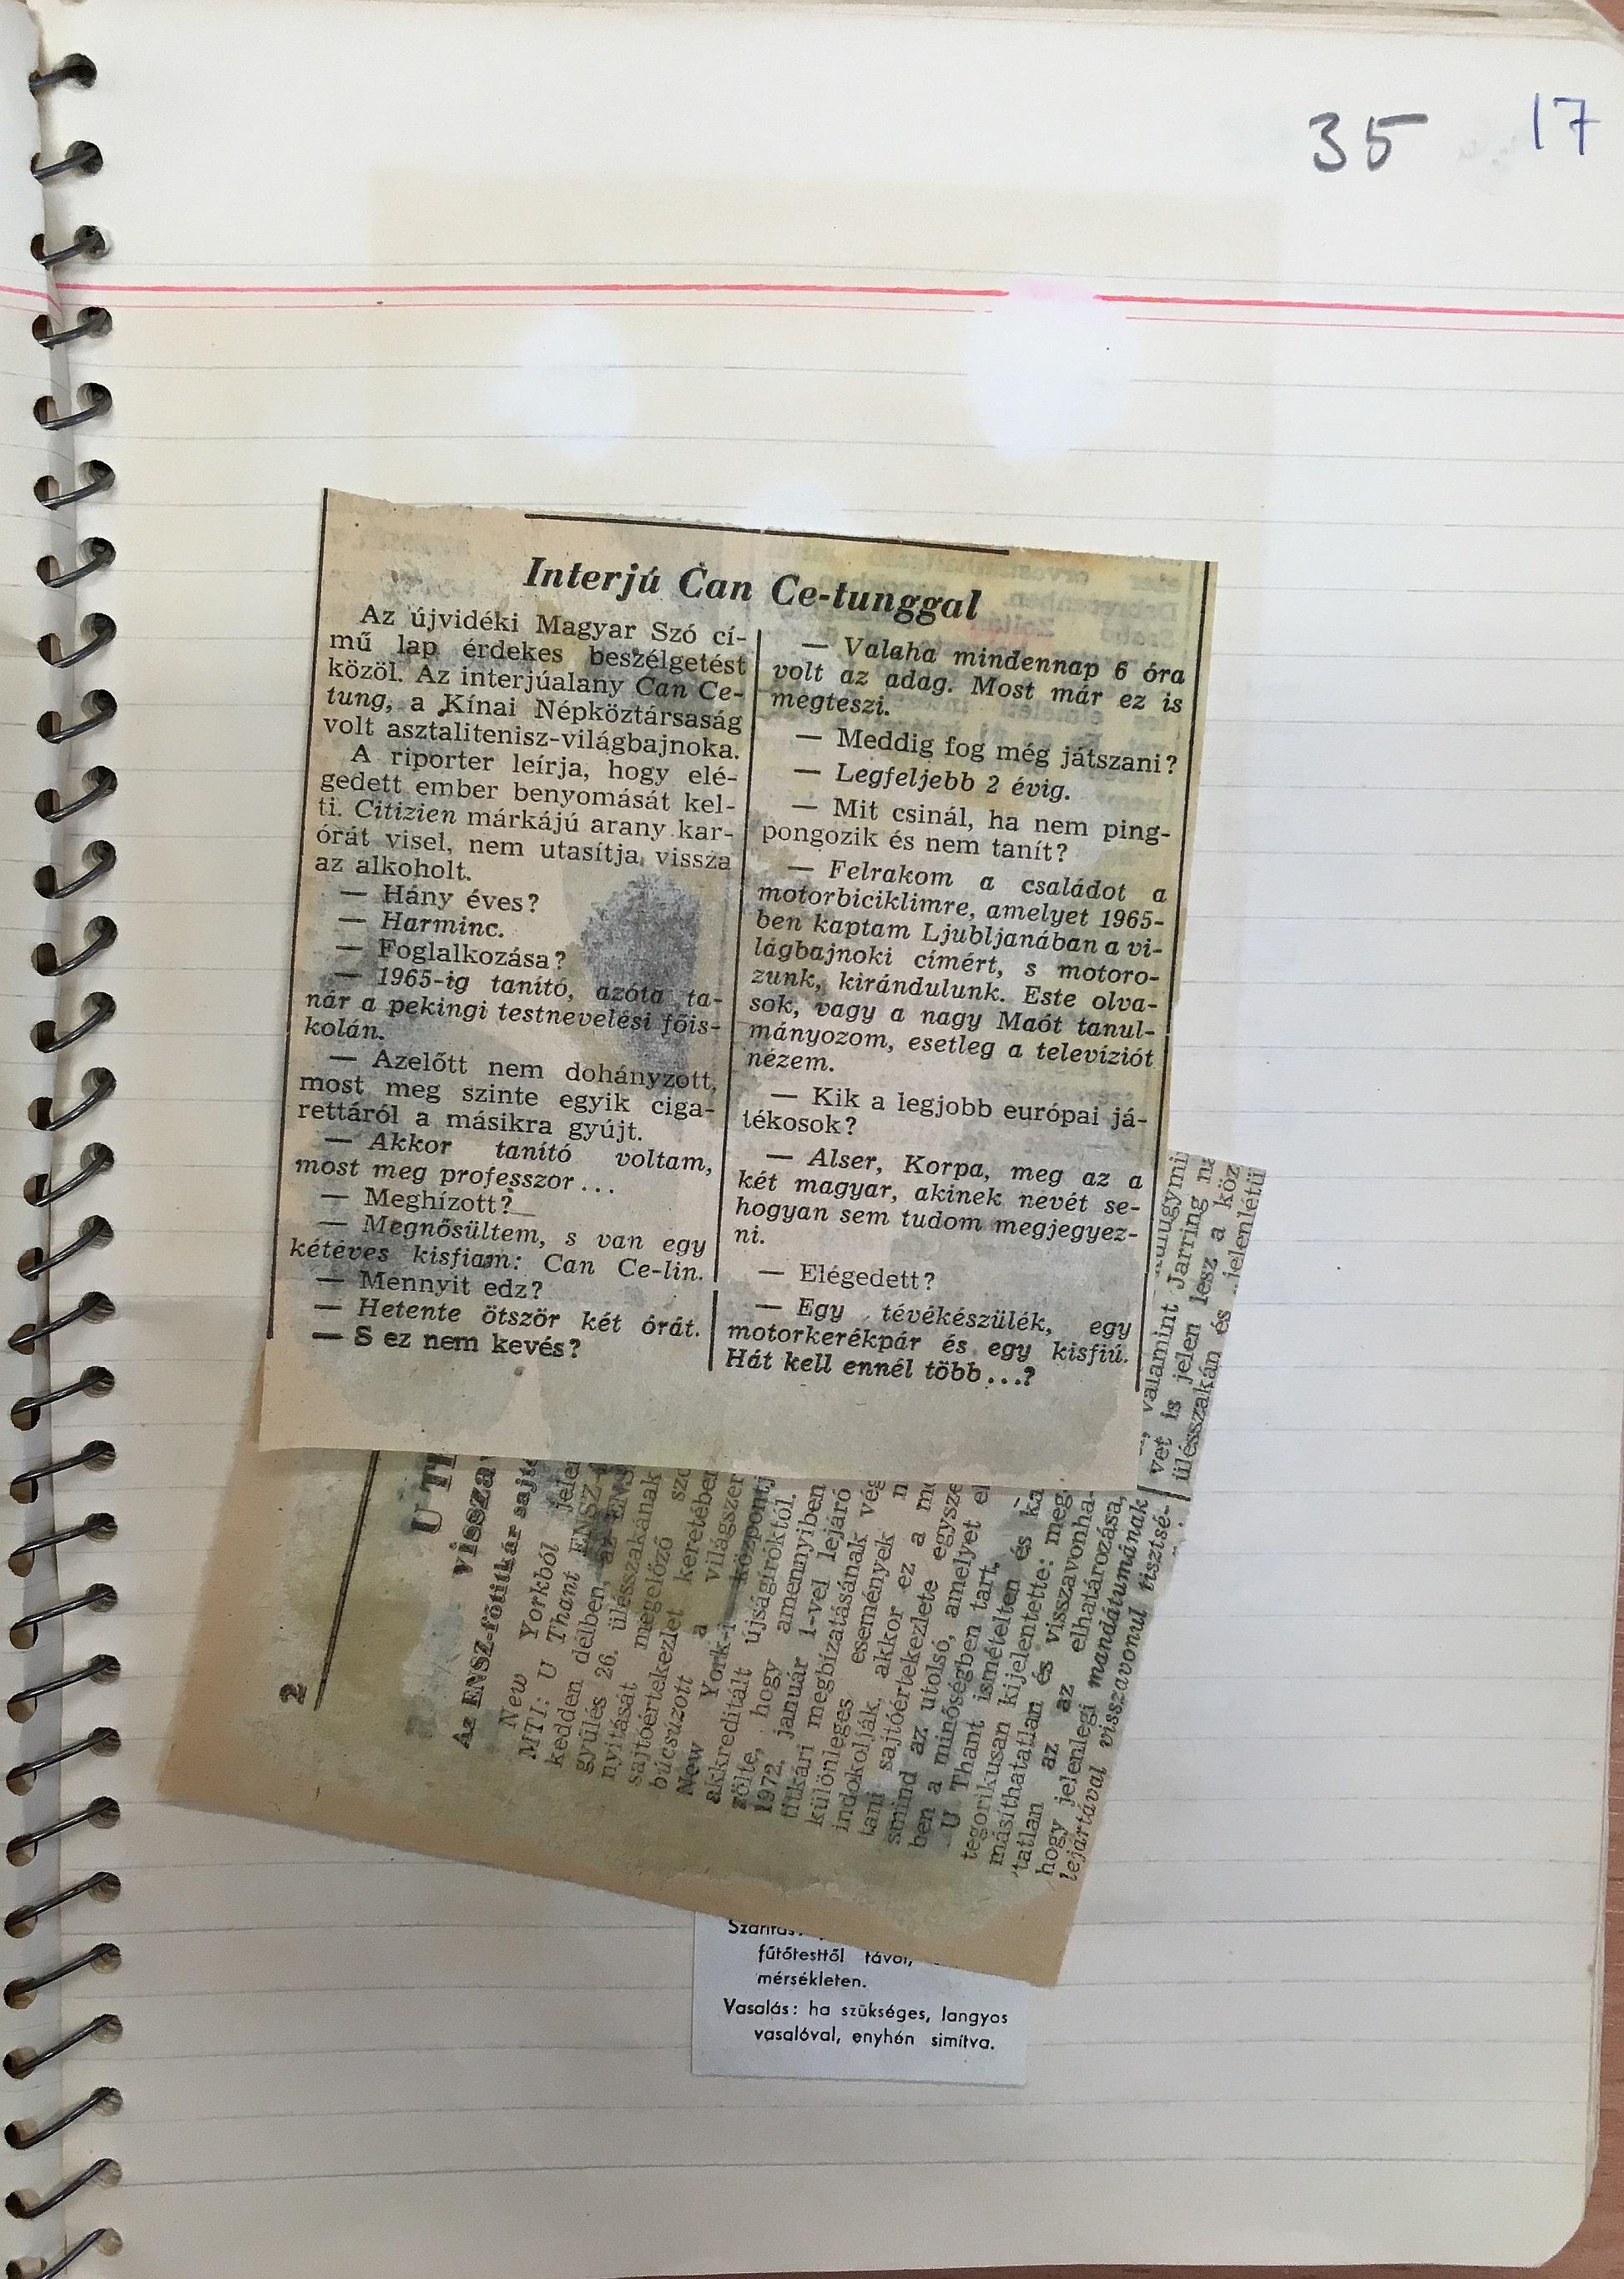 35
17
Interjú Can Ce-tunggal
Az újvidéki Magyar Szó cí-
mű lap érdekes beszélgetést
közöl. Az interjúalany Can Ce-
tung, a Kínai Népköztársaság
volt asztalitenisz-világbajnoka.
A riporter leírja, hogy elé-
gedett ember benyomását kel-
ti. Citizien márkájú arany kar-
órát visel, nem utasítja vissza
az alkoholt.
— Hány éves?
— Harminc.
— Foglalkozása?
— 1965-ig tanító, azóta ta-
nár a pekingi testnevelési főis-
kolán.
— Azelőtt nem dohányzott,
most meg szinte egyik ciga-
rettáról a másikra gyújt.
— Akkor tanító voltam,
most meg professzor...
— Meghízott?
— Megnősültem, s van egy
kétéves kisfiam: Can Ce-lin.
— Mennyit edz?
— Hetente ötször két órát.
— S ez nem kevés?
— Valaha mindennap 6 óra
volt az adag. Most már ez is
megteszi.
— Meddig fog még játszani?
— Legfeljebb 2 évig.
— Mit csinál, ha nem ping-
pongozik és nem tanít?
— Felrakom a családot a
motorbiciklimre, amelyet 1965-
ben kaptam Ljubljanában a vi-
lágbajnoki címért, s motoro-
zunk, kirándulunk. Este olva-
sok, vagy a nagy Maót tanul-
mányozom, esetleg a televíziót
nézem.
— Kik a legjobb európai já-
tékosok?
— Alser, Korpa, meg az a
két magyar, akinek nevét se-
hogyan sem tudom megjegyez-
ni.
— Elégedett?
— Egy tévékészülék, egy
motorkerékpár és egy kisfiú.
Hát kell ennél több...?
2
U T
vissza
Az ENSZ-főtitkár sajt
New Yorkból jelen
MTI: U Thant ENSZ-
kedden délben, az ENSZ
gyűlés 26. ülésszakának
nyitását megelőző
sajtóértekezlet keretében
búcsúzott a világszer
New York-i központj
akkreditált újságíróktól.
zölte, hogy amennyiben
1972. január 1-vel lejáró
titkári megbízatásának vég
különleges események n
indokolják, akkor ez a m
tani sajtóértekezlete egysze
smind az utolsó, amelyet e
ben a minőségben tart.
U Thant ismételten és ka
tegorikusan kijelentette: meg
másíthatatlan és visszavonha-
tatlan az az elhatározása,
hogy jelenlegi mandátumának
lejártával visszavonul tisztsé-
valamint Jarring na
vet is jelen lesz a köz
ülésszakán és jelenlétü
fűtőtesttől távol,
mérsékleten.
Vasalás: ha szükséges, langyos
vasalóval, enyhén simítva.